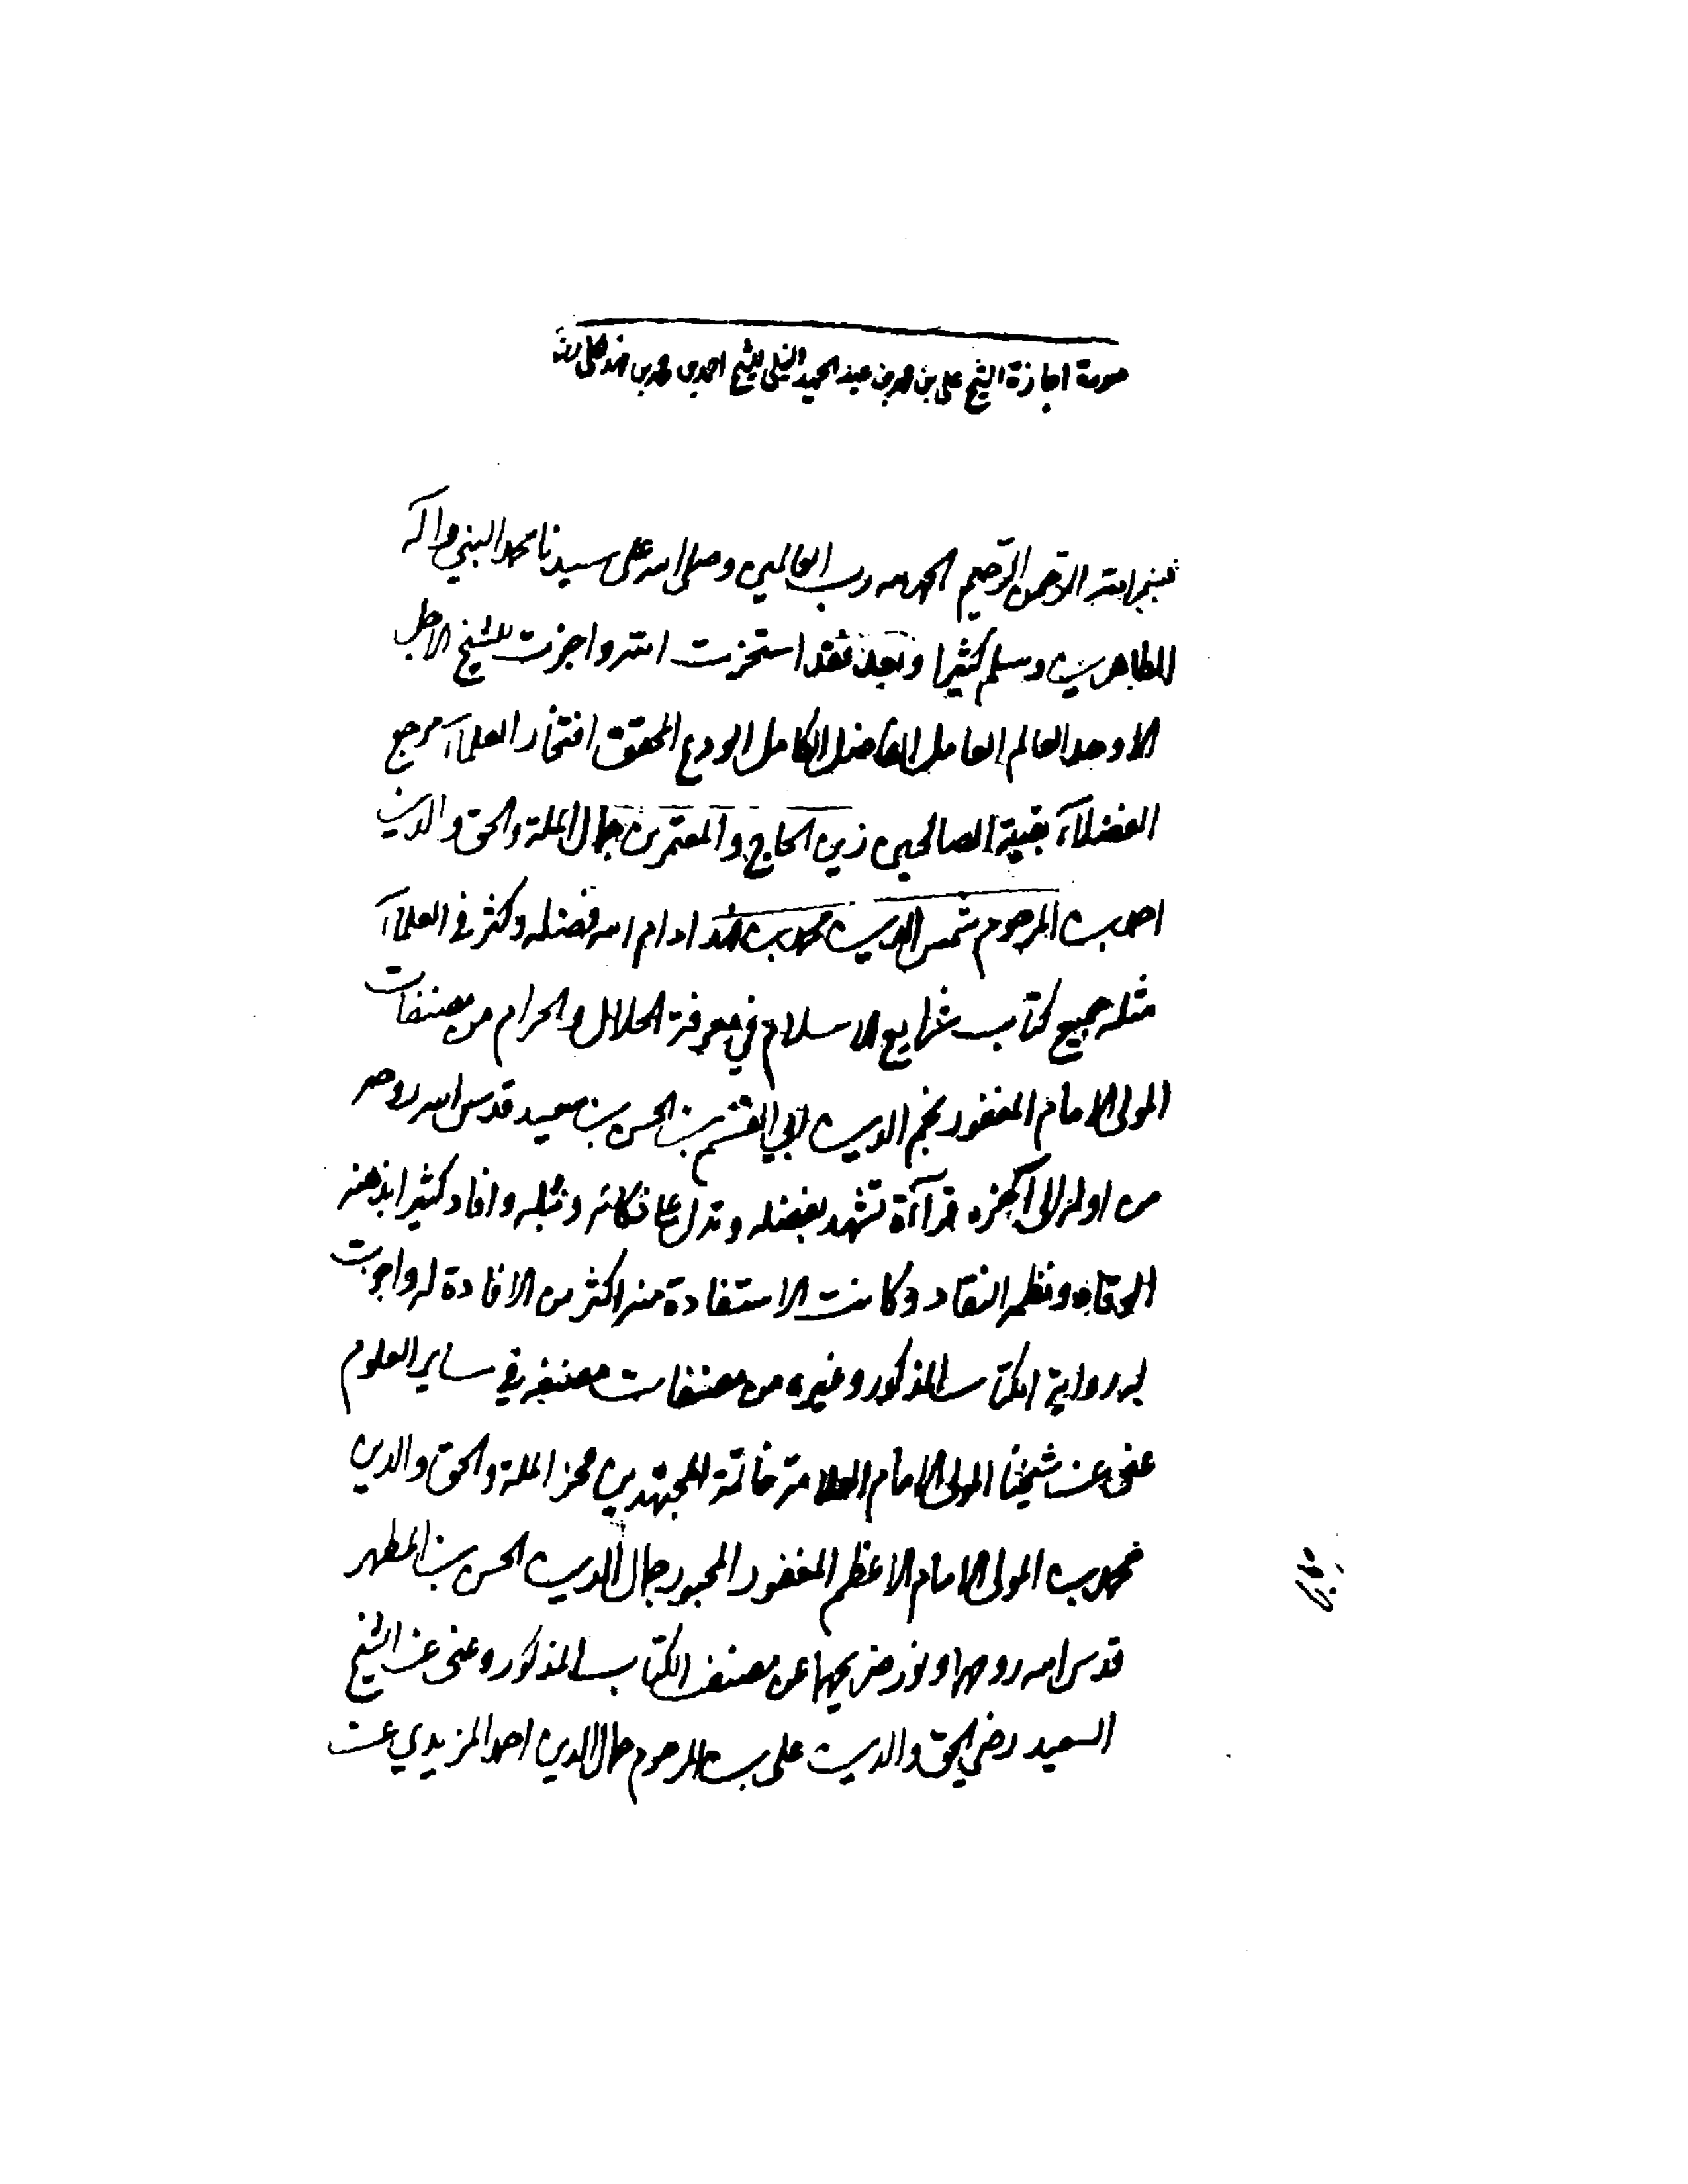 صورة اجازة الشيخ على بن محمد بن عبد الحميد النيلي للشيخ احمد بن محمد بن فهد الحلى
بسم الله الرحمن الرحيم الحمد لله رب العالمين وصلى الله على سيدنا محمد النبي واله
الطاهرين وسلم كثيرا وبعد فقد استخرت الله واجزت للشيخ الاجل
الاوحد العالم العامل الفاضل الكامل الورع المحقق افتخار العلماء مرجع
الفضلاء بقية الصالحين زين الحاج والمعتمرين جمال الملة والحق والدين
احمد بن المرحوم شمس الدين محمد بن فهد ادام الله فضله وكثر في العلماء
مثله جميع كتاب شرايع الاسلام في معرفة الحلال والحرام من مصنفات
المولى الامام المغفور نجم الدين ابي القسم بن الحسن بن سعيد قدس الله روحه
من اوله الى اخره قراءة تشهد بفضله وتدل على ذكائه ونبله وافاد كثيرا بذهنه
الوقاد ونظمه النقاد وكانت الاستفادة منه اكثر من الافادة له واجزت
له رواية الكتاب المذكور وغيره من مصنفات مصنفه في ساير العلوم
عنى عن شيخنا المولى الامام العلامة خاتمة المجتهدين فخر الملة والحق والدين
محمد بن المولى الامام الاعظم المغفور المحبور جمال الدين الحسن بن المطهر
قدس الله روحهما ونور ضريحهما عن مصنف الكتاب المذكور وعنى عن الشيخ
السعيد رضي الحق والدين على بن المرحوم جمال الدين احمد المزيدي عن